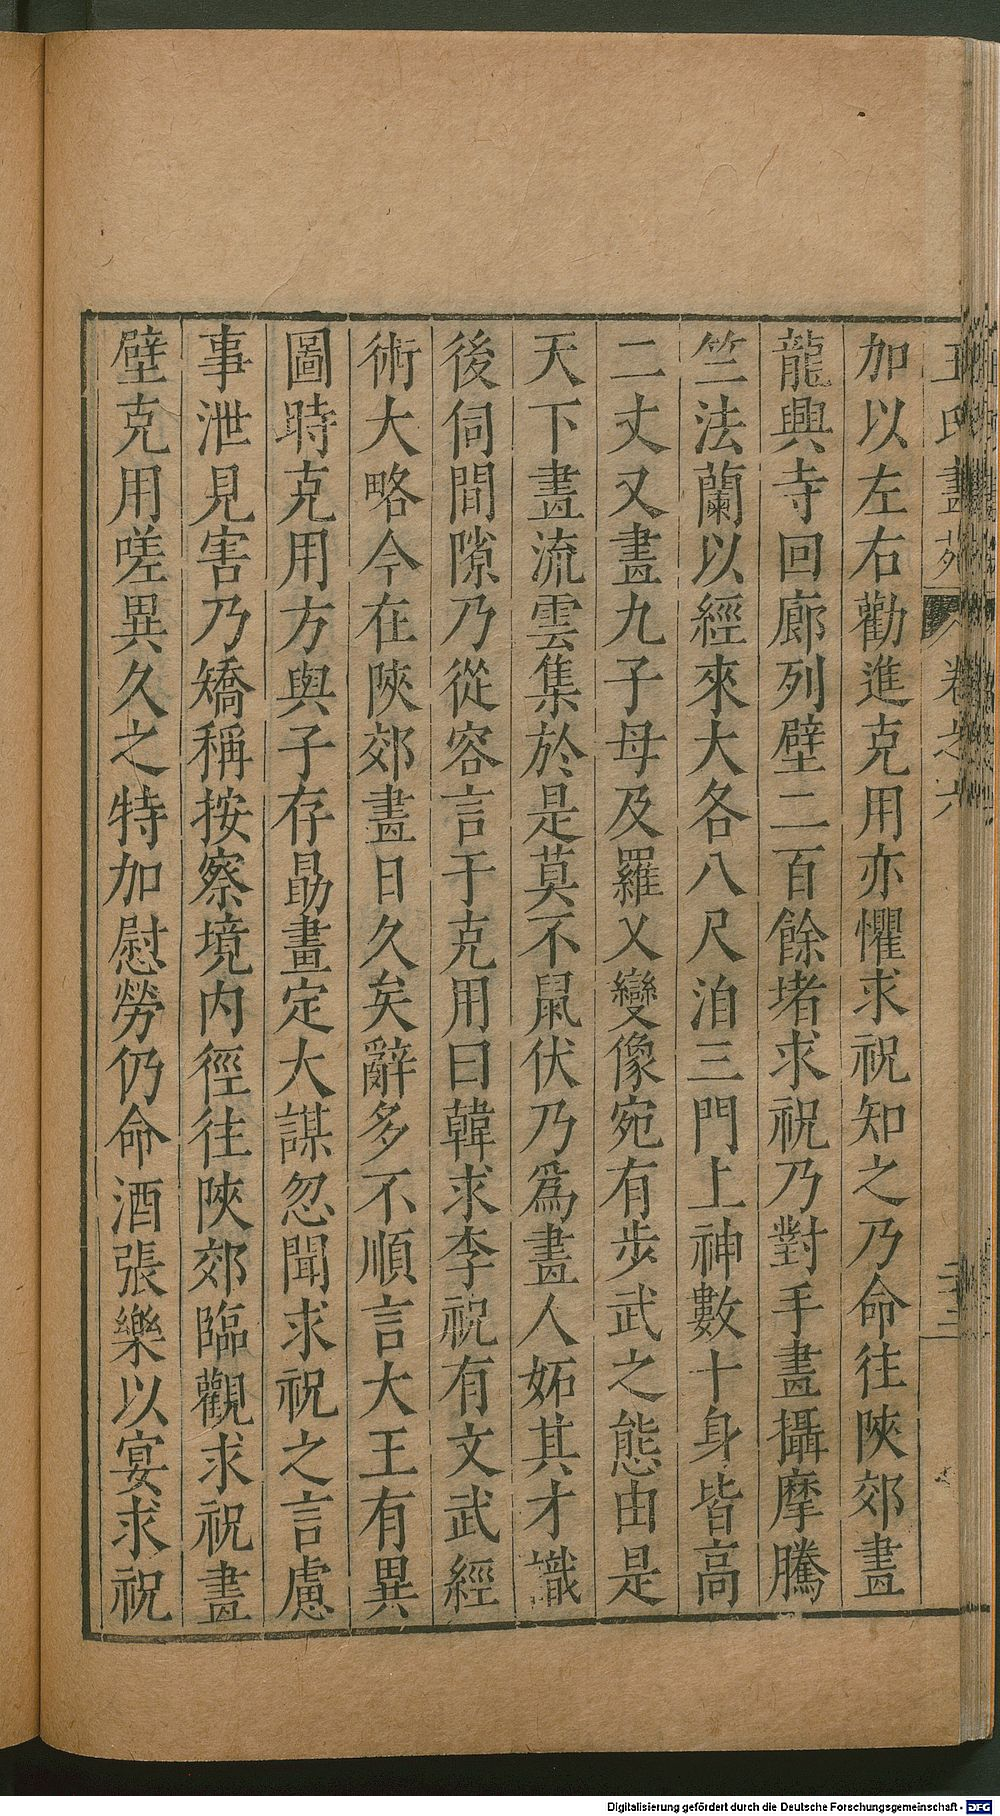 王氏畫苑 卷之六 二十三
加以左右勸進克用亦懼求祝知之乃命往陜郊畫
龍興寺回廊列壁二百餘堵求祝乃對手畫攝摩騰
竺法蘭以經來大各八尺洎三門上神數十身皆高
二丈又畫九子母及羅乂變像宛有步武之態由是
天下畫流雲集於是莫不鼠伏乃爲畫人妬其才識
後伺間隙乃從容言于克用曰韓求李祝有文武經
術大略今在陜郊畫日久矣辭多不順言大王有異
圖時克用方與子存勗畫定大謀忽聞求祝之言慮
事泄見害乃矯稱按察境内徑往陜郊臨觀求祝畫
壁克用嗟異久之特加慰勞仍命酒張樂以宴求祝
Digitalisierung gefördert durch die Deutsche Forschungsgemeinschaft - DFG